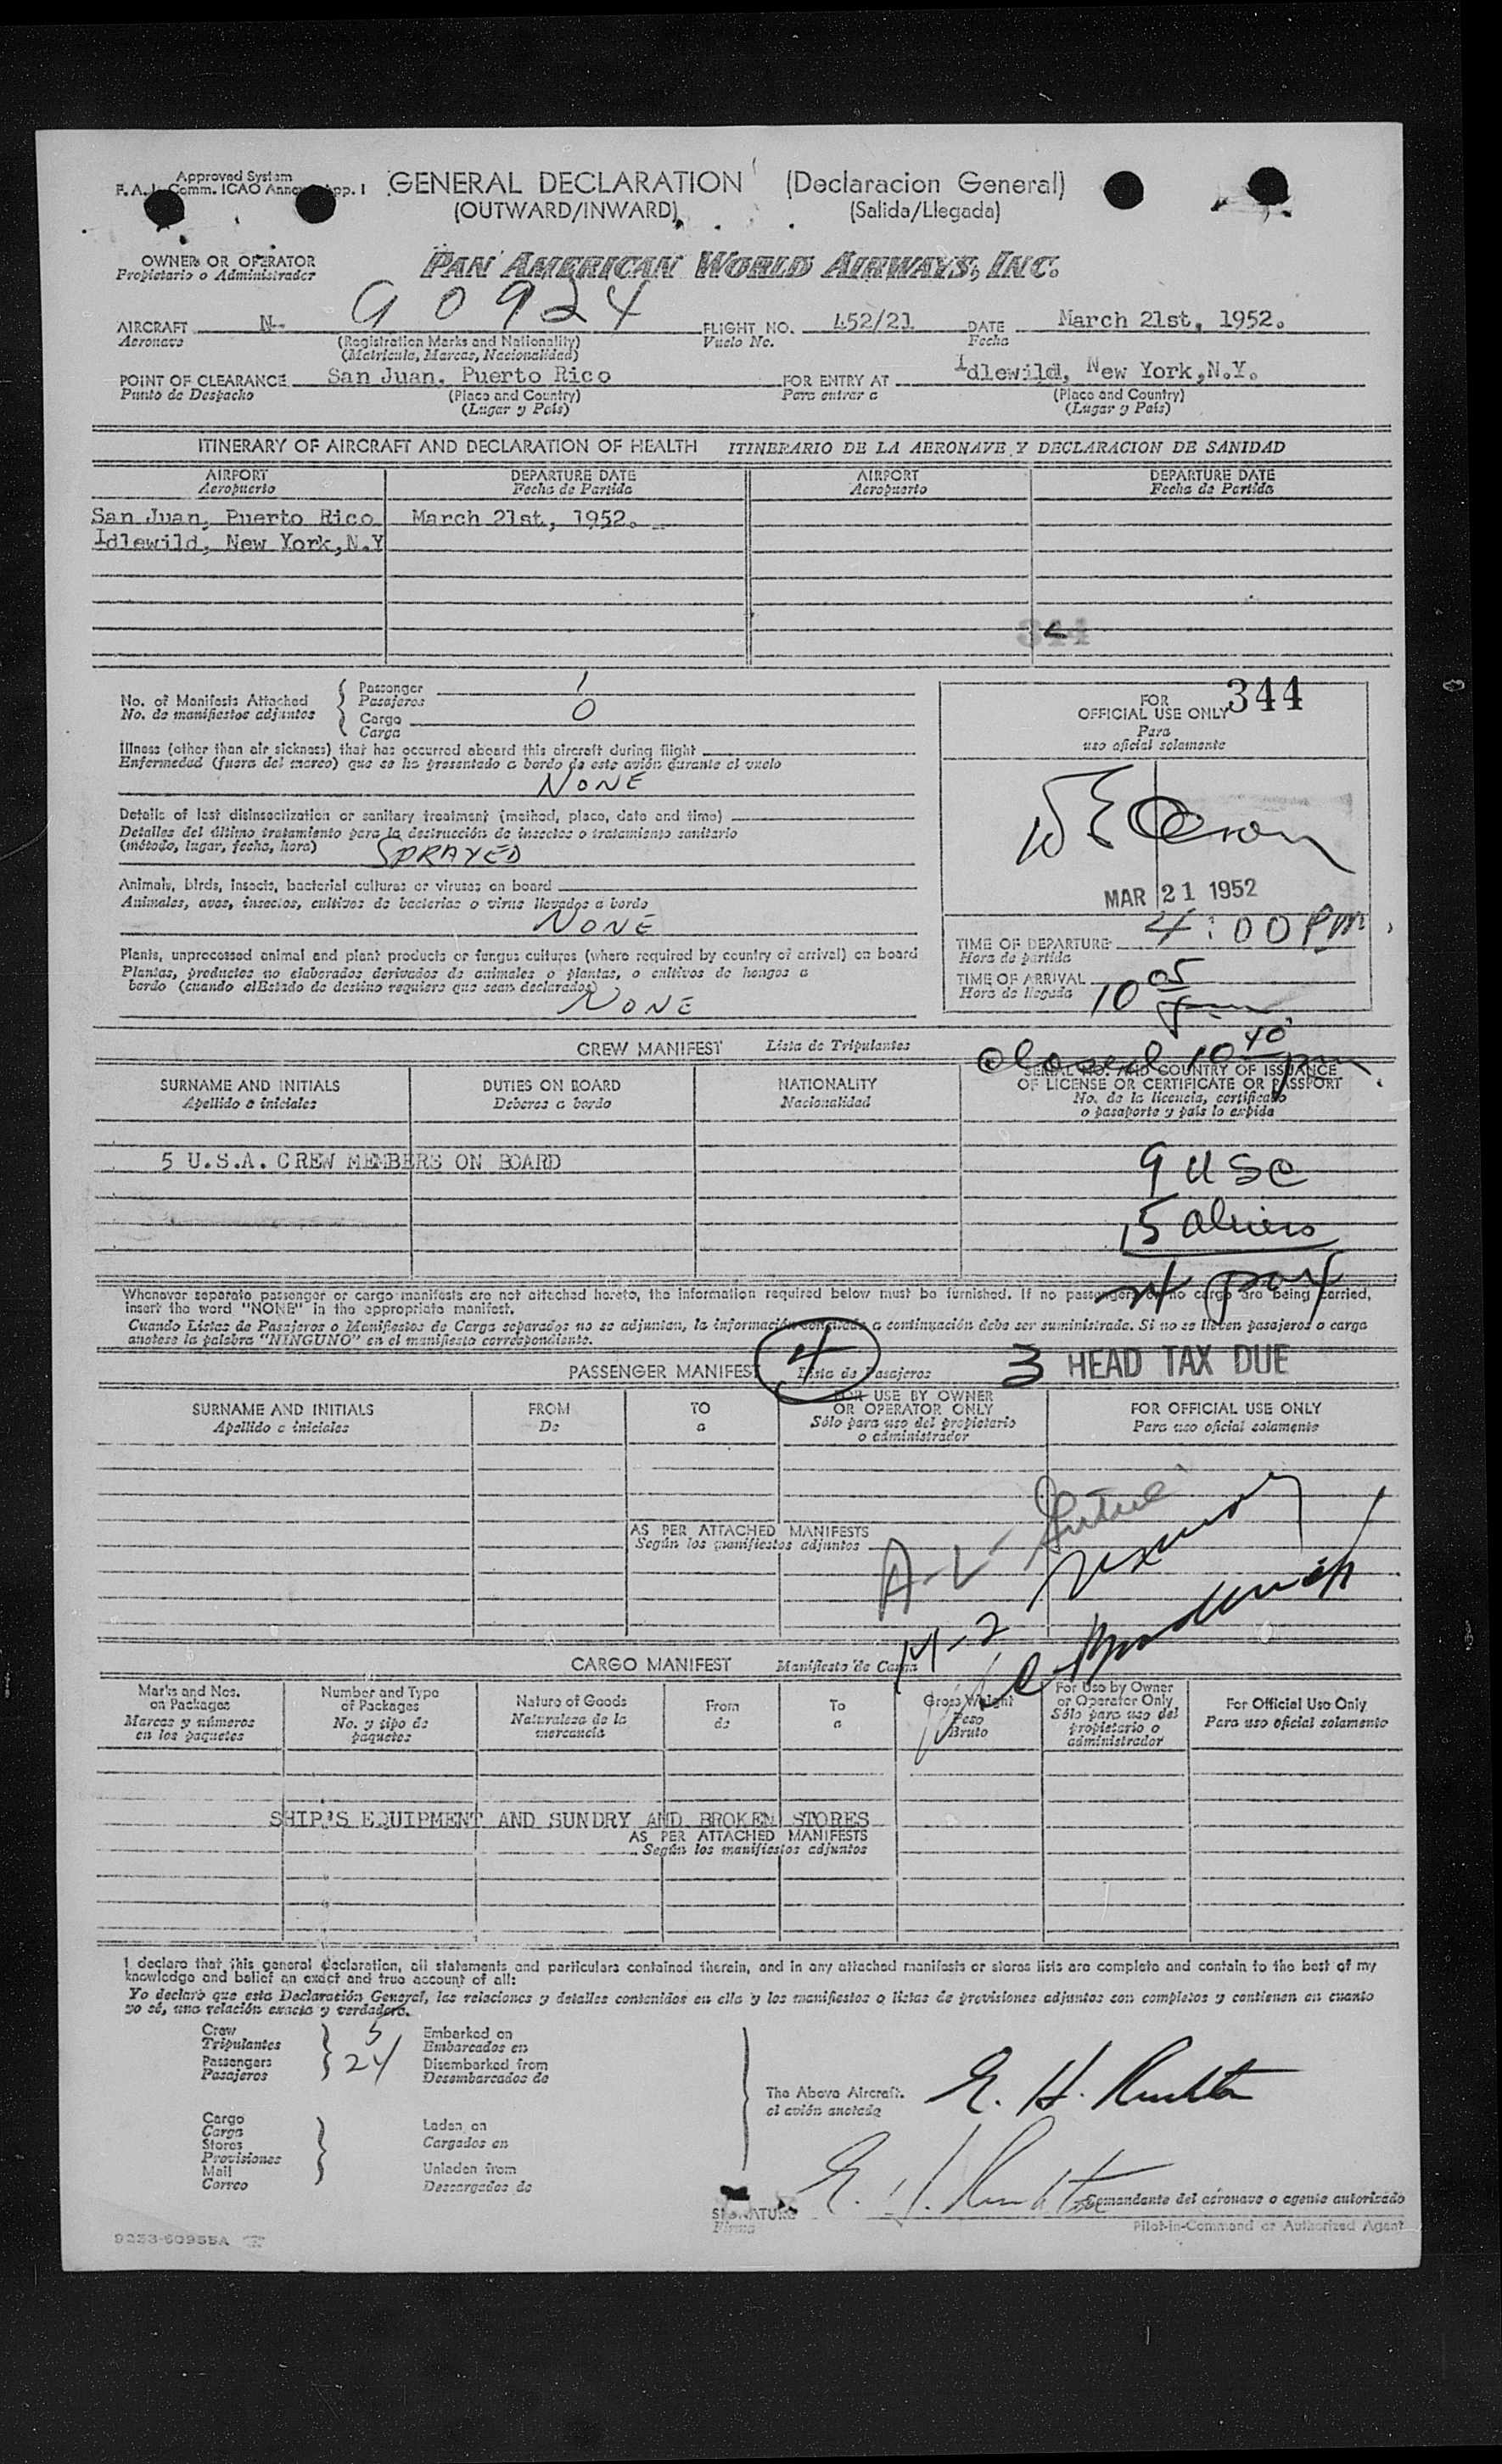 Approved System
F. A. L. Comm. ICAO Annex App. I
GENERAL DECLARATION (Declaracion General)
(OUTWARD/INWARD) (Salida/Llegada)
OWNER OR OPERATOR
Propietario o Administrador
PAN AMERICAN WORLD AIRWAYS, INC.
AIRCRAFT N- 90924 FLIGHT NO. 452/21 DATE March 21st, 1952.
Aeronave (Registration Marks and Nationality) Vuelo No. Fecha
(Matricula, Marcas, Nacionalidad)
POINT OF CLEARANCE San Juan, Puerto Rico FOR ENTRY AT Idlewild, New York,N.Y.
Punto de Despacho (Place and Country) Para entrar a (Place and Country)
(Lugar y País) (Lugar y País)
ITINERARY OF AIRCRAFT AND DECLARATION OF HEALTH ITINERARIO DE LA AERONAVE Y DECLARACION DE SANIDAD
AIRPORT DEPARTURE DATE AIRPORT DEPARTURE DATE
Aeropuerto Fecha de Partida Aeropuerto Fecha de Partida
San Juan, Puerto Rico March 21st, 1952.
Idlewild, New York,N.Y
344
No. of Manifests Attached
No. de manifiestos adjuntos
Passenger 1
Pasajeros
Cargo 0
Carga
FOR 344
OFFICIAL USE ONLY
Para
uso oficial solamente
Illness (other than air sickness) that has occurred aboard this aircraft during flight
Enfermedad (fuera del mareo) que se ha presentado a bordo de este avión durante el vuelo
NONE
Details of last disinsectization or sanitary treatment (method, place, date and time)
Detalles del último tratamiento para la destrucción de insectos o tratamiento sanitario
(método, lugar, fecha, hora) SPRAYED
Animals, birds, insects, bacterial cultures or viruses on board
Animales, aves, insectos, cultivos de bacterias o virus llevados a bordo
NONE
MAR 21 1952
TIME OF DEPARTURE 4:00 PM
Hora de partida
TIME OF ARRIVAL 10 05 pm
Hora de llegada
Plants, unprocessed animal and plant products or fungus cultures (where required by country of arrival) on board
Plantas, productos no elaborados derivados de animales o plantas, o cultivos de hongos a
bordo (cuando elEstado de destino requiera que sean declarados)
NONE
Closed 10 40 pm
CREW MANIFEST Lista de Tripulantes
SURNAME AND INITIALS DUTIES ON BOARD NATIONALITY SERIAL NO. AND COUNTRY OF ISSUANCE
OF LICENSE OR CERTIFICATE OR PASSPORT
Apellido e iniciales Deberes a bordo Nacionalidad No. de la licencia, certificado
o pasaporte y país lo expide
5 U.S.A. CREW MEMBERS ON BOARD
9 USC
15 aliens
24 pax
Whenever separate passenger or cargo manifests are not attached hereto, the information required below must be furnished. If no passengers or no cargo are being carried,
insert the word "NONE" in the appropriate manifest.
Cuando Listas de Pasajeros o Manifiestos de Carga separados no se adjuntan, la información a continuación debe ser suministrada. Si no se lleven pasajeros o carga
anotese la palabra "NINGUNO" en el manifiesto correspondiente.
PASSENGER MANIFEST Lista de Pasajeros
4
3 HEAD TAX DUE
SURNAME AND INITIALS FROM TO FOR USE BY OWNER
OR OPERATOR ONLY FOR OFFICIAL USE ONLY
Apellido e iniciales De a Sólo para uso del propietario
o administrador Para uso oficial solamente
AS PER ATTACHED MANIFESTS
Según los manifiestos adjuntos
CARGO MANIFEST Manifiesto de Carga
Marks and Nos.
on Packages
Marcas y números
en los paquetes
Number and Type
of Packages
No. y tipo de
paquetes
Nature of Goods
Naturaleza de la
mercancía
From
de
To
a
Gross Weight
Peso
Bruto
For Use by Owner
or Operator Only
Sólo para uso del
propietario o
administrador
For Official Use Only
Para uso oficial solamente
SHIP'S EQUIPMENT AND SUNDRY AND BROKEN STORES
AS PER ATTACHED MANIFESTS
Según los manifiestos adjuntos
I declare that this general declaration, all statements and particulars contained therein, and in any attached manifests or stores lists are complete and contain to the best of my
knowledge and belief an exact and true account of all:
Yo declaro que esta Declaración General, las relaciones y detalles contenidos en ella y los manifiestos o listas de provisiones adjuntos son completos y contienen en cuanto
yo sé, una relación exacta y verdadera.
Crew 5 Embarked on
Tripulantes Embarcados en
Passengers 24 Disembarked from
Pasajeros Desembarcados de
The Above Aircraft.
el avión anotado
Cargo
Carga
Stores
Provisiones
Mail
Correo
Laden on
Cargados en
Unladen from
Descargados de
SIGNATURE
Firma
E. H.
Comandante del aeronave o agente autorizado
Pilot-in-Command or Authorized Agent
9233-60955A